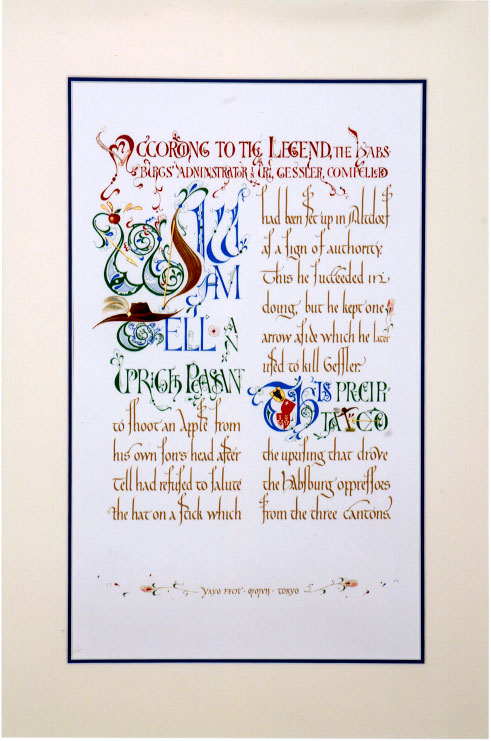 ACCORDING TO THE LEGEND, THE HABS
BURGS' ADMINISTRATOR I URI, GESSLER, COMPELLED
WILLI
AM
TELL AN
UPRIGHT PEASANT
to shoot an Apple from
his own son's head after
Tell had refused to salute
the hat on a stick which
had been set up in Altdorf
as a sign of authority.
This he succeeded in
doing, but he kept one
arrow aside which he later
used to kill Gessler.
THIS PRECIPI
TATED
the uprising that drove
the Habsburg oppressors
from the three cantons.
YAYO FECIT · MMVII · TOKYO